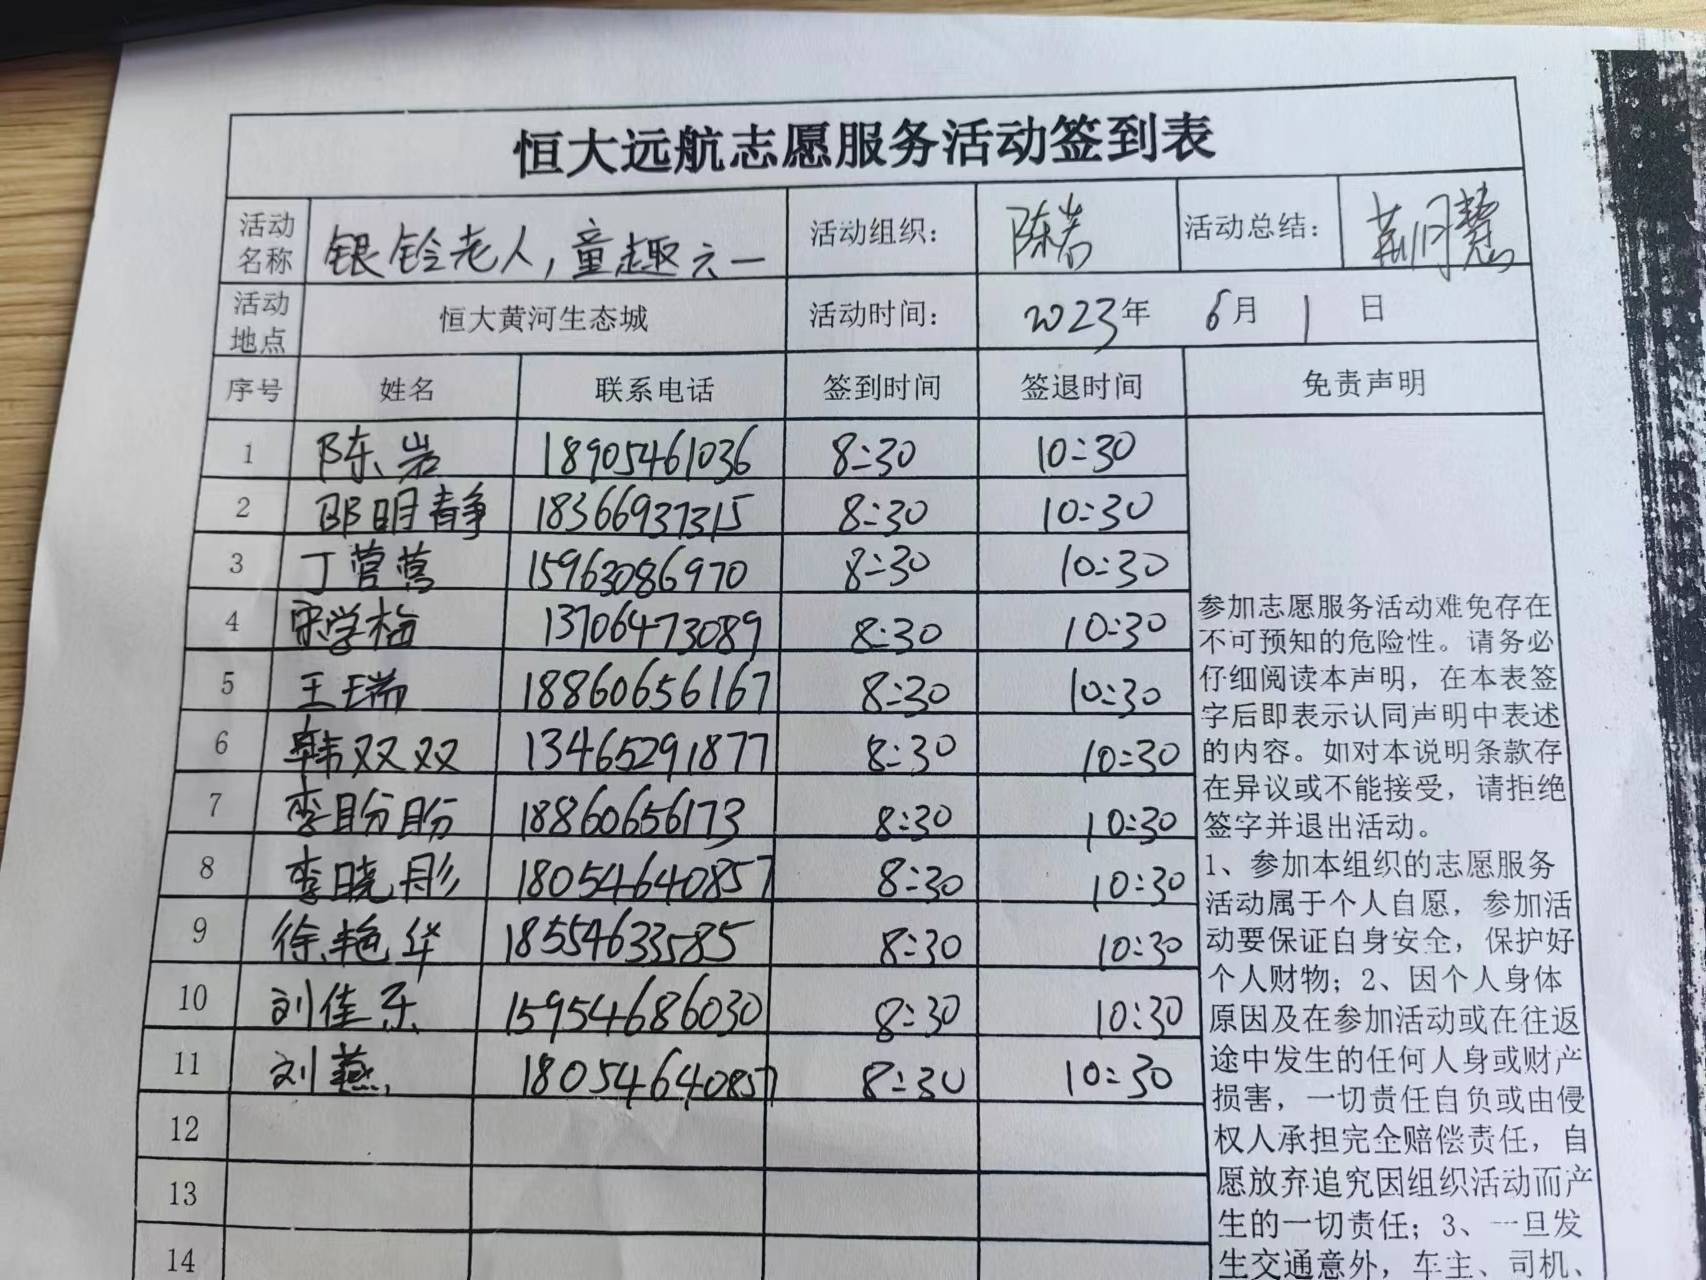 恒大远航志愿服务活动签到表
活动名称 银铃老人,童趣六一 活动组织: 陈岩 活动总结: 荆月慧
活动地点 恒大黄河生态城 活动时间: 2023年 6月 1 日
序号 姓名 联系电话 签到时间 签退时间 免责声明
1 陈岩 18905461036 8:30 10:30
2 邵明静 18366937315 8:30 10:30
3 丁莺莺 15963086970 8:30 10:30
4 宋学梅 13706473089 8:30 10:30
5 王瑞 18860656167 8:30 10:30
6 韩双双 13465291877 8:30 10:30
7 李盼盼 18860656173 8:30 10:30
8 李晓彤 18054640857 8:30 10:30
9 徐艳华 18554633585 8:30 10:30
10 刘佳乐 15954686030 8:30 10:30
11 刘燕 18054640857 8:30 10:30
12
13
14
参加志愿服务活动难免存在
不可预知的危险性。请务必
仔细阅读本声明，在本表签
字后即表示认同声明中表述
的内容。如对本说明条款存
在异议或不能接受，请拒绝
签字并退出活动。
1、参加本组织的志愿服务
活动属于个人自愿，参加活
动要保证自身安全，保护好
个人财物；2、因个人身体
原因及在参加活动或在往返
途中发生的任何人身或财产
损害，一切责任自负或由侵
权人承担完全赔偿责任，自
愿放弃追究因组织活动而产
生的一切责任；3、一旦发
生交通意外，车主、司机、